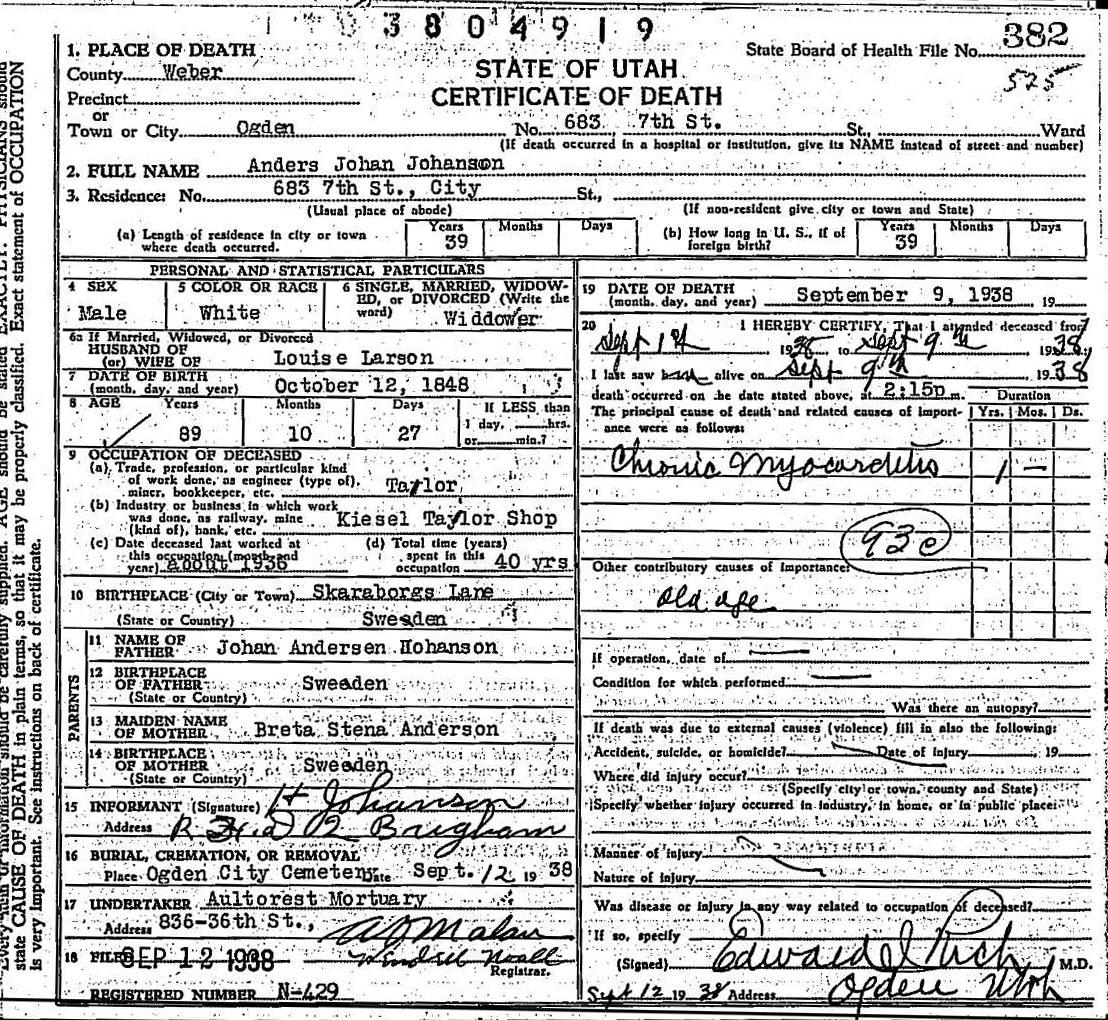 3804919
1. PLACE OF DEATH
State Board of Health File No. 382
575
County Weber
STATE OF UTAH
CERTIFICATE OF DEATH
Precinct
or
Town or City Ogden No. 683 7th St. St., Ward
(If death occurred in a hospital or institution, give its NAME instead of street and number)
2. FULL NAME Anders Johan Johanson
3. Residence: No. 683 7th St., City St.,
(Usual place of abode) (If non-resident give city or town and State)
(a) Length of residence in city or town where death occurred. Years 39 Months Days
(b) How long in U. S., if of foreign birth? Years 39 Months Days
PERSONAL AND STATISTICAL PARTICULARS
4 SEX Male
5 COLOR OR RACE White
6 SINGLE, MARRIED, WIDOWED, or DIVORCED (Write the word) Widdower
6a If Married, Widowed, or Divorced
HUSBAND OF
(or) WIFE OF Louise Larson
7 DATE OF BIRTH
(month, day, and year) October 12, 1848
8 AGE Years 89 Months 10 Days 27
If LESS than 1 day, hrs. or min.?
9 OCCUPATION OF DECEASED
(a) Trade, profession, or particular kind
of work done, as engineer (type of),
miner, bookkeeper, etc. Taylor
(b) Industry or business in which work
was done, as railway, mine
(kind of), bank, etc. Kiesel Taylor Shop
(c) Date deceased last worked at
this occupation (month and
year) about 1936
(d) Total time (years)
spent in this
occupation 40 yrs
10 BIRTHPLACE (City or Town) Skaraborgs Lane
(State or Country) Sweaden
PARENTS
11 NAME OF
FATHER Johan Andersen Hohanson
12 BIRTHPLACE
OF FATHER Sweaden
(State or Country)
13 MAIDEN NAME
OF MOTHER Breta Stena Anderson
14 BIRTHPLACE
OF MOTHER Sweaden
(State or Country)
15 INFORMANT (Signature) H Johanson
Address R 2 Brigham
16 BURIAL, CREMATION, OR REMOVAL
Place Ogden City Cemetery Date Sept. 12 19 38
17 UNDERTAKER Aultorest Mortuary
Address 836-36th St.,
A O Malan
18 FILED SEP 12 1938 Wendell Noall
Registrar.
REGISTERED NUMBER N-429
19 DATE OF DEATH
(month, day, and year) September 9, 1938 19
20 I HEREBY CERTIFY, That I attended deceased from
Sept 1st 1938 to Sept 9th 1938
I last saw him alive on Sept 9th 1938
death occurred on the date stated above, at 2:15p m.
Duration
The principal cause of death and related causes of importance were as follows: Yrs. Mos. Ds.
Chronic Myocarditis 1 —
93c
Other contributory causes of importance:
old age
If operation, date of
Condition for which performed
Was there an autopsy?
If death was due to external causes (violence) fill in also the following:
Accident, suicide, or homicide? Date of injury 19
Where did injury occur?
(Specify city or town, county and State)
Specify whether injury occurred in industry, in home, or in public place:
Manner of injury
Nature of injury
Was disease or injury in any way related to occupation of deceased?
If so, specify
(Signed) Edward I Rich M.D.
Sept 12 19 38 Address Ogden Utah
state CAUSE OF DEATH in plain terms, so that it may be properly classified. Exact statement of OCCUPATION
is very important. See instructions on back of certificate.